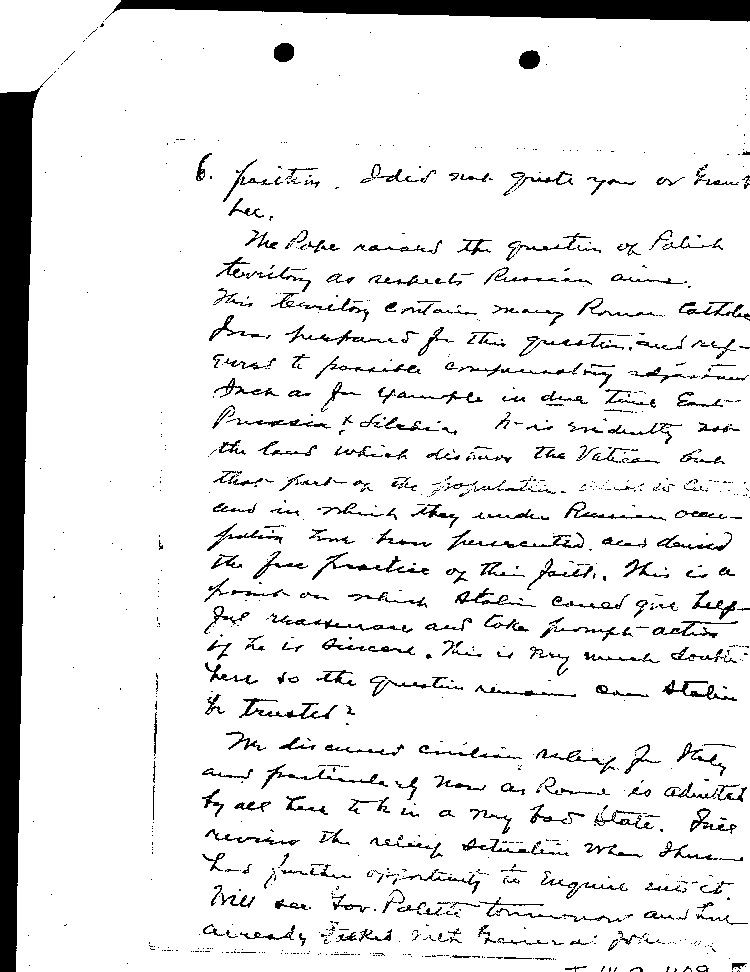 6. position. I did not quote you or Grant
Lee.
The Pope raised the question of Polish
territory as respects Russian aims.
This territory contains many Roman Catholic
I was prepared for this question, and ref-
erred to possible compensatory adjustment
Such as for example in due time East
Prussia & Silesia. It is evidently not
the land which disturbs the Vatican but
that part of the population
and in which they under Russian occu-
pation have been persecuted and denied
the free practice of their faith. This is a
point on which Stalin could give help-
ful reassurance and take prompt action
if he is sincere. This is very much doubted
here so the question remains can Stalin
be trusted?
We discussed civilian relief for Italy
and particularly now as Rome is admitted
by all here to be in a very bad State. I will
review the relief situation when I have
had further opportunity to enquire into it.
Will see Gov. Poletti tomorrow and have
already talked with General